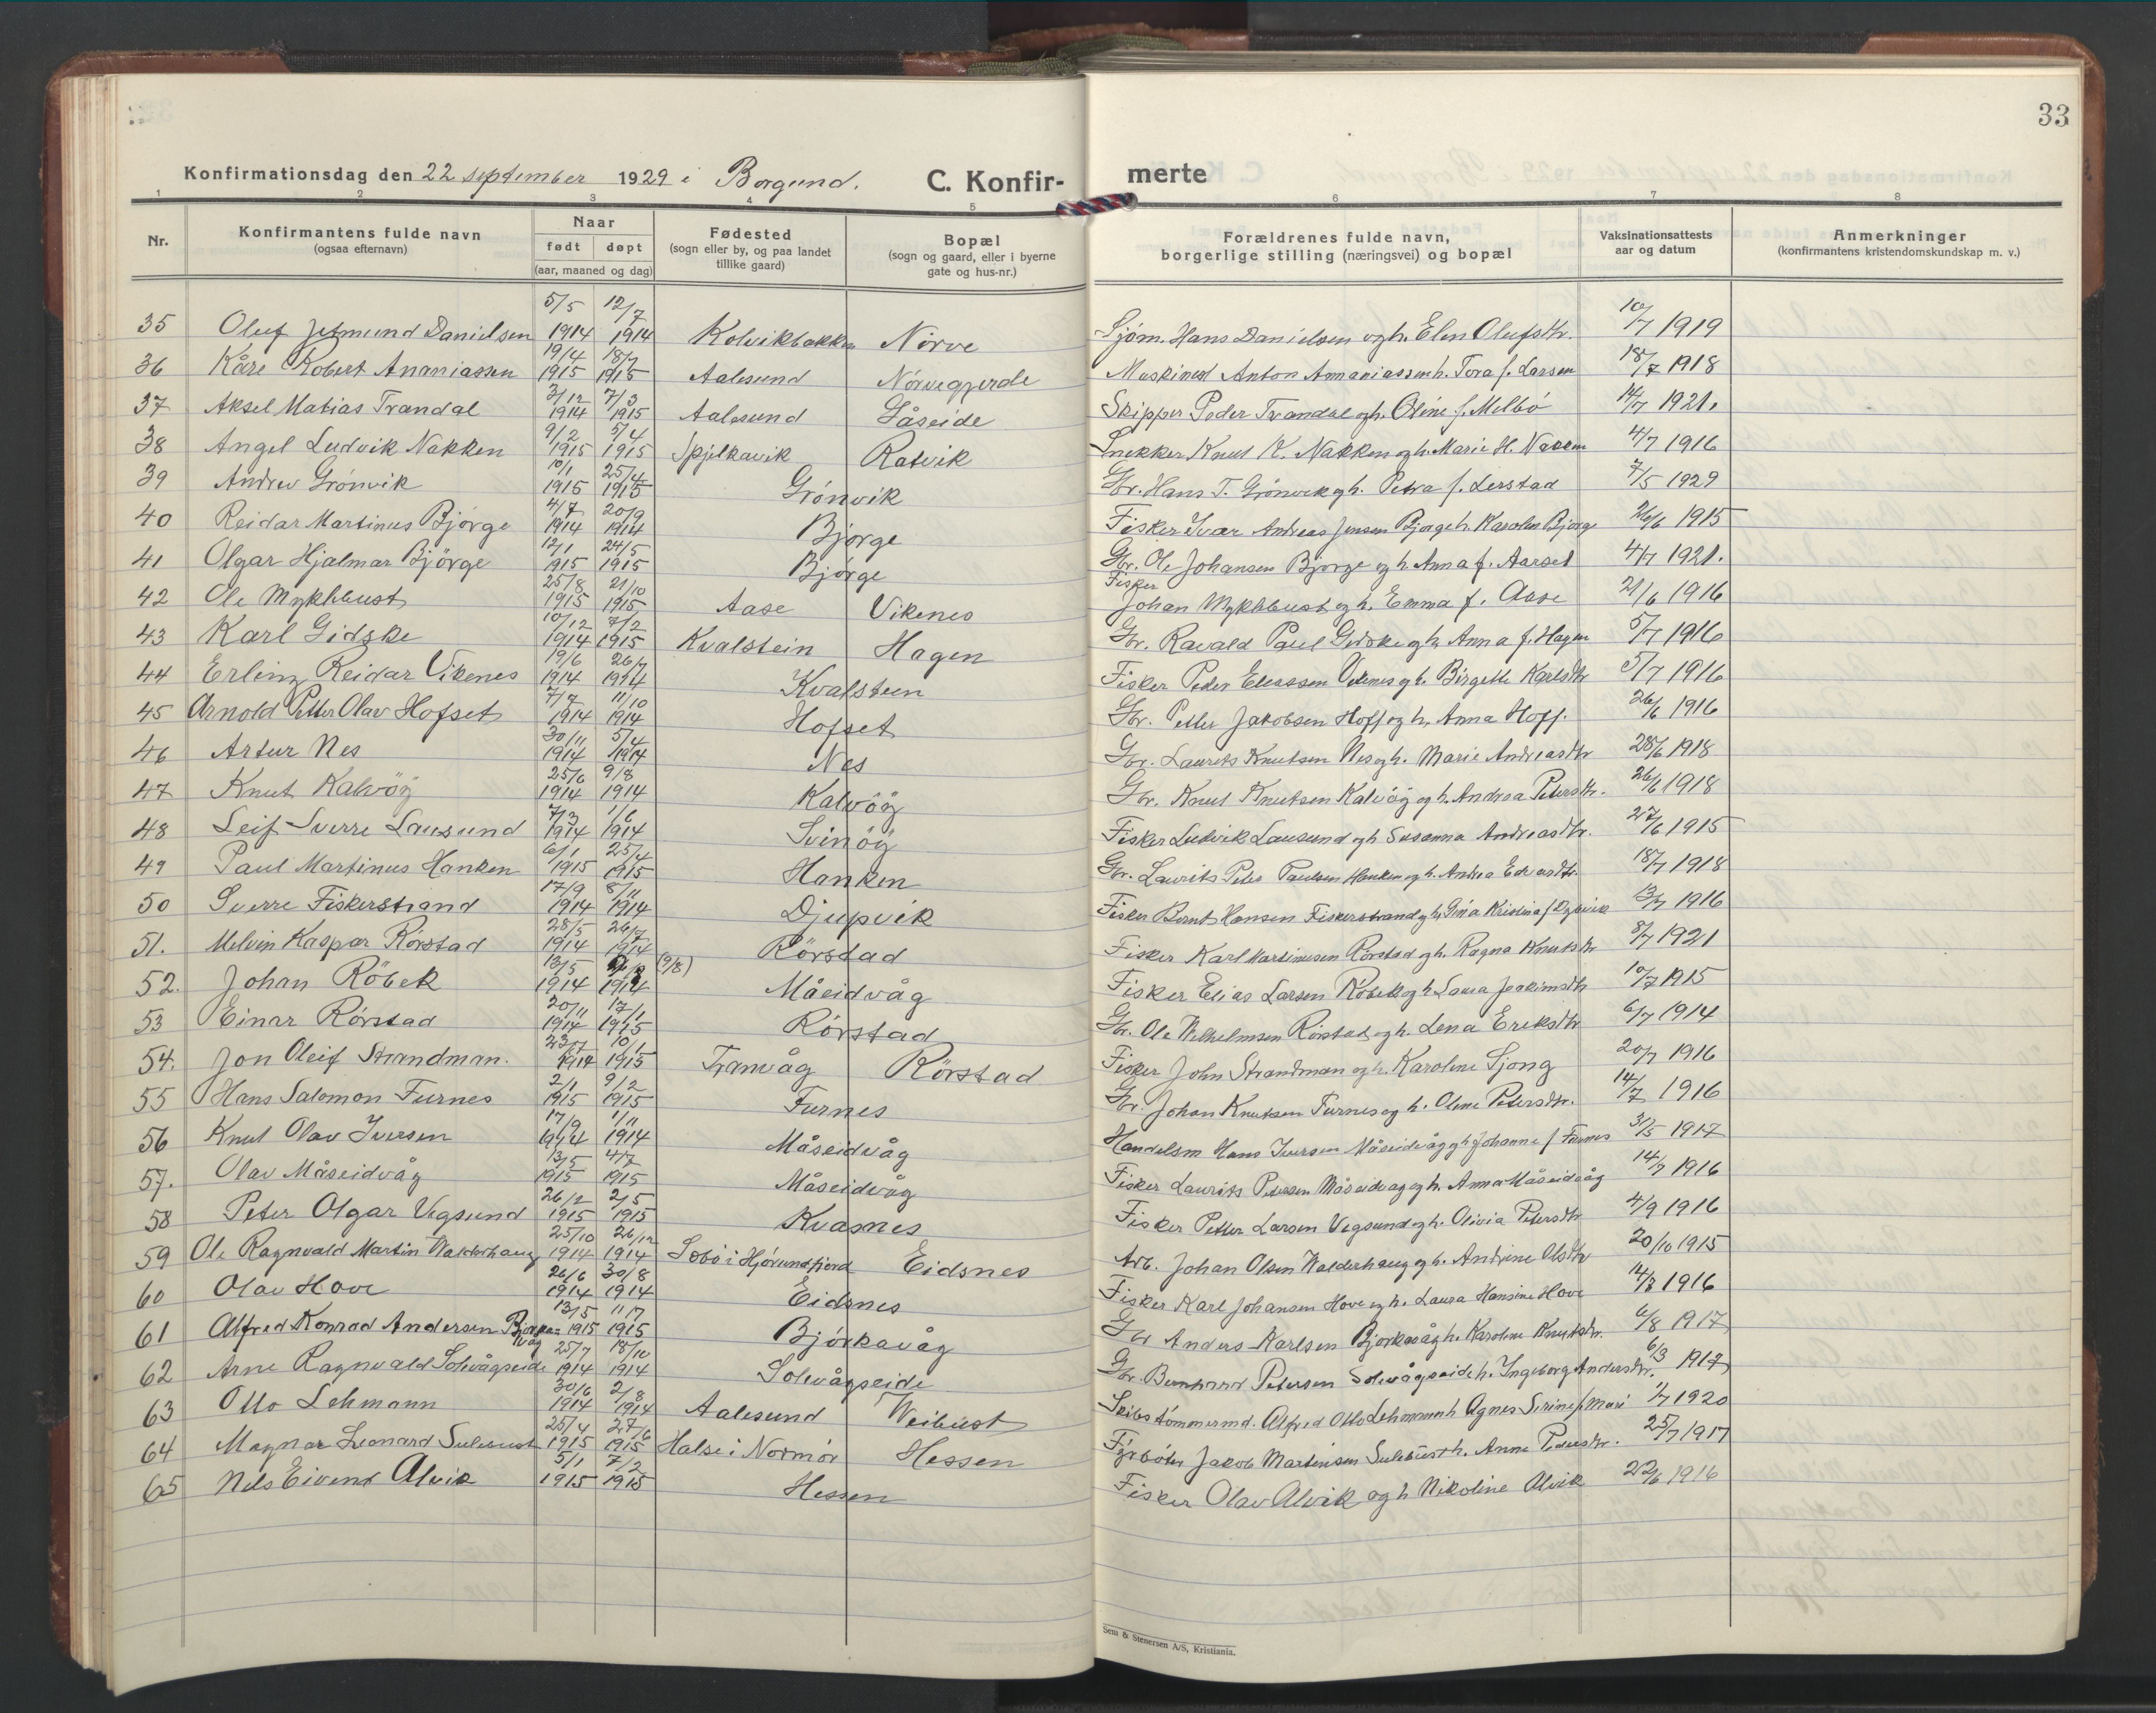 33
Konfirmationsdag den 22 september 1929 i Borgund. C. Konfir- merte
1 2 3 4 5 6 7 8
Nr. Konfirmantens fulde navn (ogsaa efternavn) Naar født døpt (aar, maaned og dag) Fødested (sogn eller by, og paa landet tillike gaard) Bopæl (sogn og gaard, eller i byerne gate og hus-nr.) Forældrenes fulde navn, borgerlige stilling (næringsvei) og bopæl Vaksinationsattests aar og datum Anmerkninger (konfirmantens kristendomskundskap m. v.)
35 Oluf Jetmund Danielsen 5/5 1914 12/7 1914 Kolvikbakken Nørve Sjøm. Hans Danielsen og h. Elen Olufsdtr. 10/7 1919
36 Kåre Robert Ananiassen 19/4 1915 18/7 1915 Aalesund Nørvegjerde Maskinist Anton Annaniassen h. Tora f. Larsen 18/7 1918
37 Aksel Matias Trandal 3/12 1914 7/3 1915 Aalesund Gåseide Skipper Peder Trandal og h. Oline f. Melbö 14/7 1921.
38 Angel Ludvik Nakken 9/2 1915 5/4 1915 Spjelkavik Ratvik Snekker Knut K. Nakken og h. Marie H. Nakken 4/7 1916
39 Andrev Grönvik 10/1 1915 25/4 1915 Grönvik Gbr. Hans T. Grönvik og h. Petra f. Lerstad 7/5 1929
40 Reidar Martinus Bjørge 4/7 1914 20/9 1914 Bjørge Fisker Ivar Andreas Jensen Bjørge h. Karolen Bjørge 26/6 1915
41 Olgar Hjalmar Bjørge 12/1 1915 24/5 1915 Bjørge Gbr. Ole Johansen Bjørge og h. Anna f. Aarset 4/7 1921.
42 Ole Myklebust 25/8 1915 21/10 1915 Aase Vikenes Fisker Johan Myklebust og h. Emma f. Aase 21/6 1916
43 Karl Gidske 10/12 1914 7/2 1915 Kvalstein Hagen Gbr. Ravald Paul Gidske og h. Anna f. Hagen 5/7 1916
44 Erling Reidar Vikenes 19/6 1914 26/7 1914 Kvalstein Fisker Peder Eliassen Vikenes og h. Birgitte Karlsdtr 5/7 1916
45 Arnold Petter Olav Hofset 7/7 1914 11/10 1914 Hofset Gbr. Petter Jakobsen Hoff og h. Anna Hoff. 26/6 1916
46 Artur Nes 30/11 1914 5/4 1914 Nes Gbr. Laurits Knutsen Nes og h. Marie Andreasdtr 28/6 1918
47 Knut Kalvöy 25/6 1914 9/8 1914 Kalvöy Gbr. Knut Knutsen Kalvöy og h. Andrea Petersdtr. 26/6 1918
48 Leif Sverre Lausund 7/3 1914 1/6 1914 Svinöy Fisker Ludvik Lausund og h Susanna Andreasdtr. 27/6 1915
49 Paul Martinus Hanken 6/1 1915 25/4 1915 Hanken Gbr. Laurits Peter Paulsen Hanken og h. Andrea Edvardtr. 18/7 1918
50 Sverre Fiskerstrand 17/9 1914 8/11 1914 Djupvik Fisker Bernt Hansen Fiskerstrand og h. Gina Kristina f Djupvik 13/7 1916
51. Melvin Kaspar Rörstad 28/5 1914 26/7 1914 Rörstad Fisker Karl Martinusen Rörstad og h. Ragna Knutsdtr 8/7 1921
52. Johan Röbek 13/5 1914 1914 (9/8) Måseidvåg Fisker Elias Larsen Röbek og h Laura Joakimsdtr 10/7 1915
53 Einar Rörstad 20/11 1914 17/1 1915 Rörstad Gbr. Ole Wilhelmsen Rörstad og h. Lena Eriksdtr 6/7 1914
54. Jon Oleif Strandman. 23/7 1914 10/1 1915 Tranvåg Rörstad Fisker John Strandman og h. Karoline Sjong 20/7 1916
55 Hans Salomon Furnes 2/1 1915 9/2 1915 Furnes Gbr. Johan Knutsen Furnes og h. Oline Petersdtr. 14/7 1916
56 Knut Olav Iversen 17/9 1914 1/11 1914 Måseidvåg Handelsm Hans Iversen Måseidvåg og h Johanne f Furnes 31/5 1917
57. Olav Måseidvåg 13/5 1915 4/7 1915 Måseidvåg Fisker Laurits Petersen Måseidvåg og h. Anna Måseidvåg 14/7 1916
58 Peter Olgar Vegsund 26/2 1915 2/5 1915 Kvasnes Fisker Petter Larsen Vegsund og h. Olivia Petersdtr 4/9 1916
59 Ole Ragnvald Martin Walderhaug 25/10 1914 26/12 1914 Sæbö i Hjörundfjord Eidsnes Arb. Johan Olsen Walderhaug og h. Andrine Olsdtr 20/10 1915
60 Olav Hove 26/6 1914 30/8 1914 Eidsnes Fisker Karl Johansen Hove og h. Laura Hansine Hove 14/8 1916
61 Alfred Konrad Andersen Bjørkavåg 13/5 1915 11/7 1915 Bjørkavåg Gbr Anders Karlsen Bjorkavåg h. Karoline Knutsdtr. 6/8 1917
62 Arne Ragnvald Solevågseide 25/7 1914 18/10 1914 Solevågseide Gbr. Bernhard Petersen Solevågseide h. Ingeborg Andersdtr. 6/3 1917
63 Otto Lehmann 30/6 1914 2/8 1914 Aalesund Weibust Skibstömmermd. Alfred Otto Lehmann h Agnes Sirine f. 1/7 1920
64 Magnar Leonard Sulebust 25/4 1915 27/6 1915 Halse i Normör Hessen Fyrböter Jakob Martinsen Sulebust h. Anne Pedersdtr. 25/7 1917
65 Nils Eivind Alvik 5/1 1915 7/2 1915 Hessen Fisker Olav Alvik og h Nikoline Alvik 22/6 1916
Sem & Stenersen A/S, Kristiania.